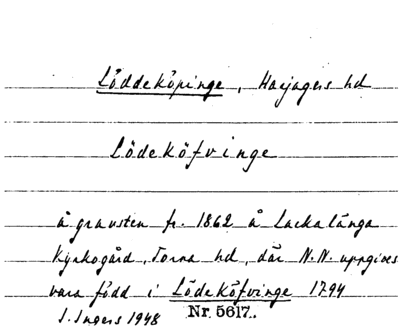 Löddeköpinge, Harjagers hd
Lödeköfvinge
å gravsten fr. 1862 å Lackalänga
Kyrkogård, Torna hd, där N.N. uppgives
vara född i Lödeköfvinge 1794
I. Ingers 1948 Nr. 5617.